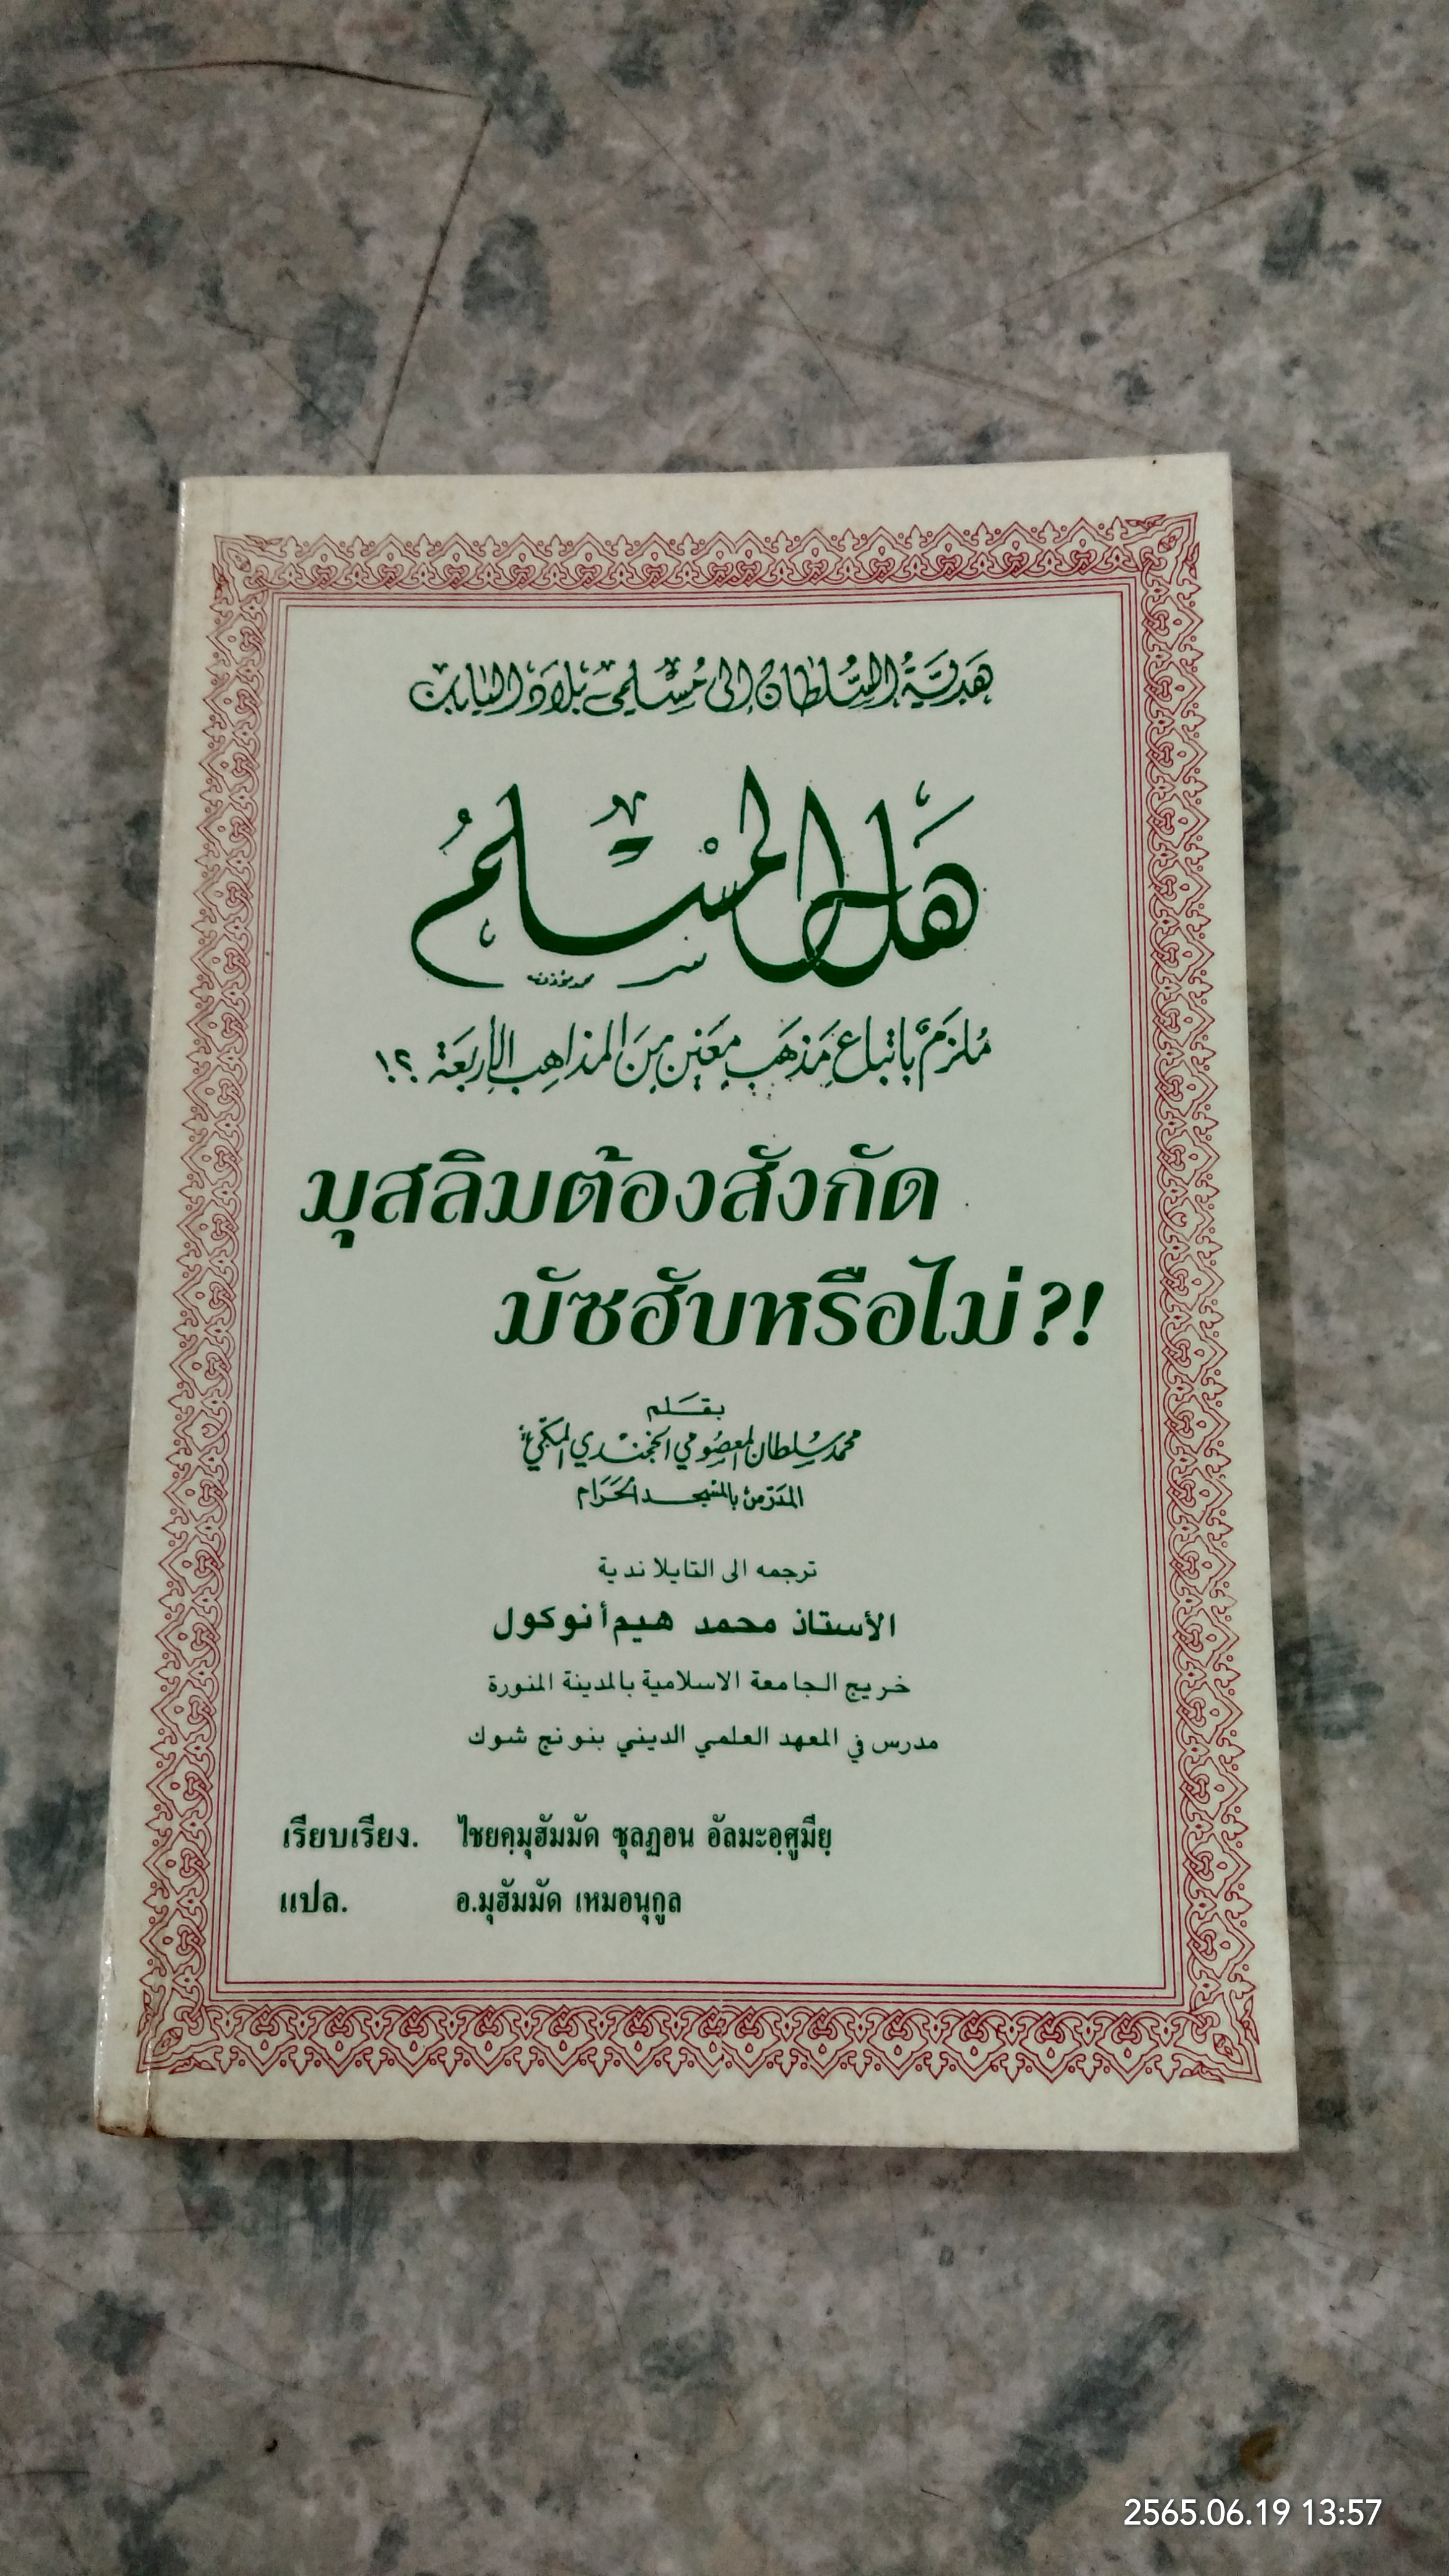 هَديَّةُ السُّلطَان إلى مُسْلمي بلَادِ اليَابان
هَل المُسْلِمُ
مُلزَمٌ باتباع مَذهَب معَين مِنَ المذاهِب الأربعَة ؟!
มุสลิมต้องสังกัด
มัซฮับหรือไม่?!
بقَلم
محمد سُلطان المعصُومي الخجَندي المكّي
المدَرّس بالمسْجد الحَرَام
ترجمه الى التايلاندية
الأستاذ محمد هيم أنوكول
خريج الجامعة الاسلامية بالمدينة المنورة
مدرس في المعهد العلمي الديني بنونج شوك
เรียบเรียง. ไชยคฺมุฮัมมัด ซุลฏอน อัลมะอฺศูมียฺ
แปล. อ.มุฮัมมัด เหมอนุกูล
2565.06.19 13:57